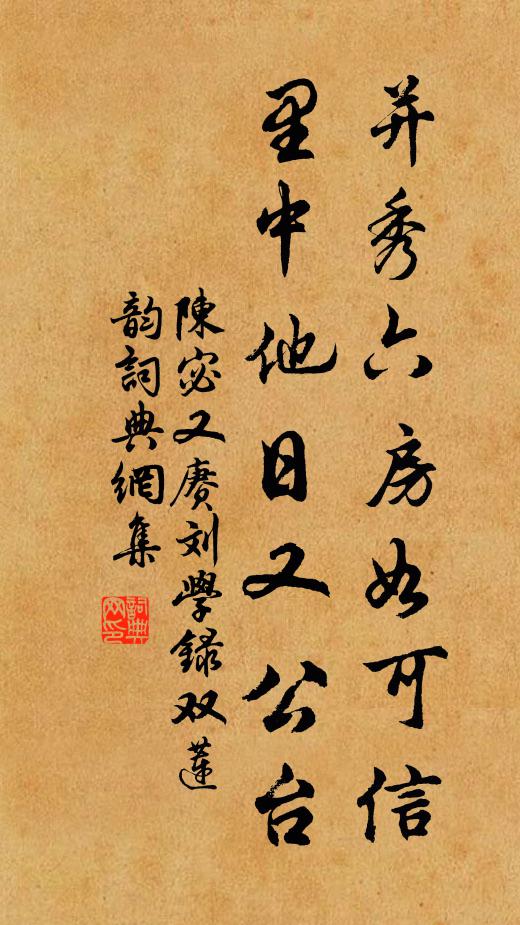 并秀六房如可信
里中他日又公台
陳宓又赓刘學録双蓮
韵詞典網集
詞典网印